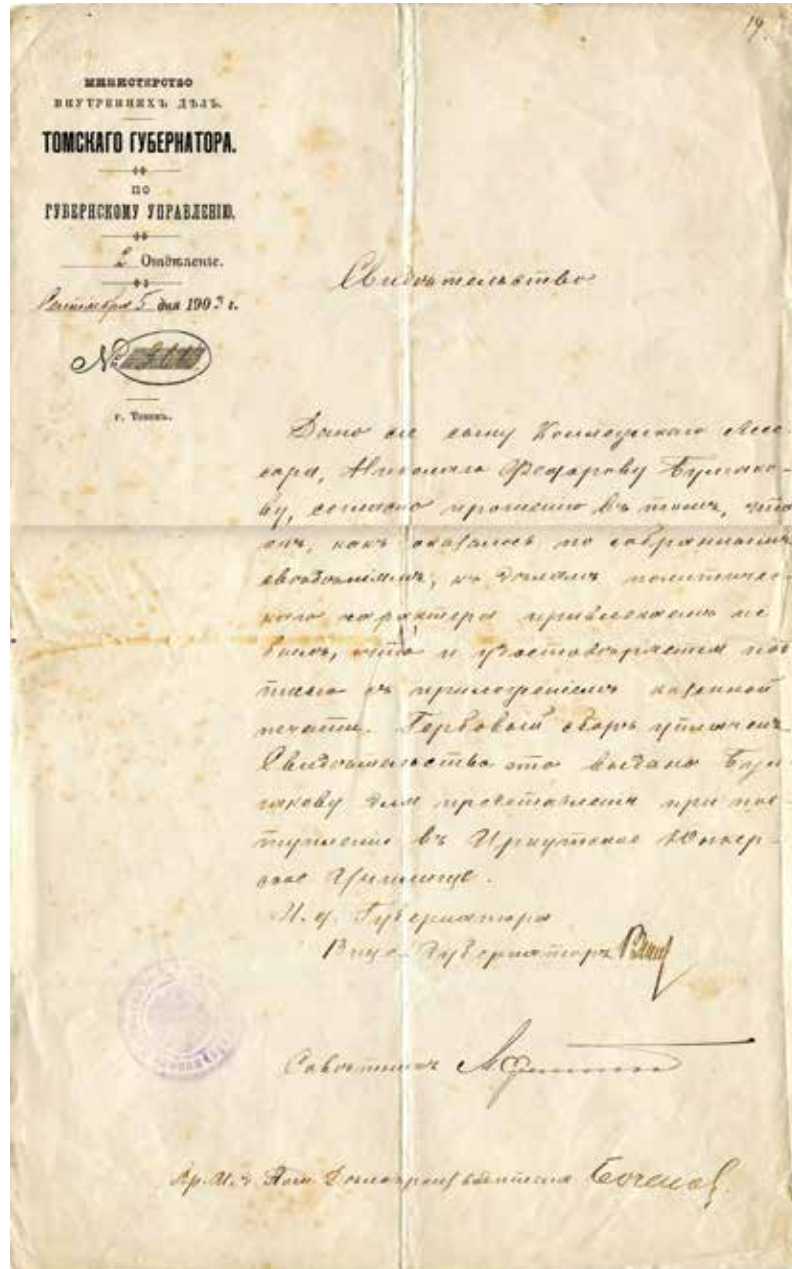 19.
МИНИСТЕРСТВО
ВНУТРЕННИХЪ ДѢЛЪ.
ТОМСКАГО ГУБЕРНАТОРА.
ПО
ГУБЕРНСКОМУ УПРАВЛЕНІЮ.
2 Отдѣленіе.
Сентября 5 дня 1903 г.
№
г. Томскъ.
Свидѣтельство
Дано сіе сыну Коллежскаго Ассе-
сора, Николаю Федорову Булгако-
ву, согласно прошенію въ томъ, что
онъ, какъ оказалось по собраннымъ
свѣдѣніямъ, къ дѣламъ политиче-
скаго характера привлекаемъ не
былъ, что и удостовѣряется под-
писью съ приложеніемъ казенной
печати. Гербовый сборъ уплаченъ.
Свидѣтельство это выдано Бул-
гакову для представленія при пос-
тупленіи въ Иркутское Юнкер-
ское Училище.
И. д. Губернатора
Вице-Губернаторъ
Совѣтникъ
Пом. Дѣлопроизводителя